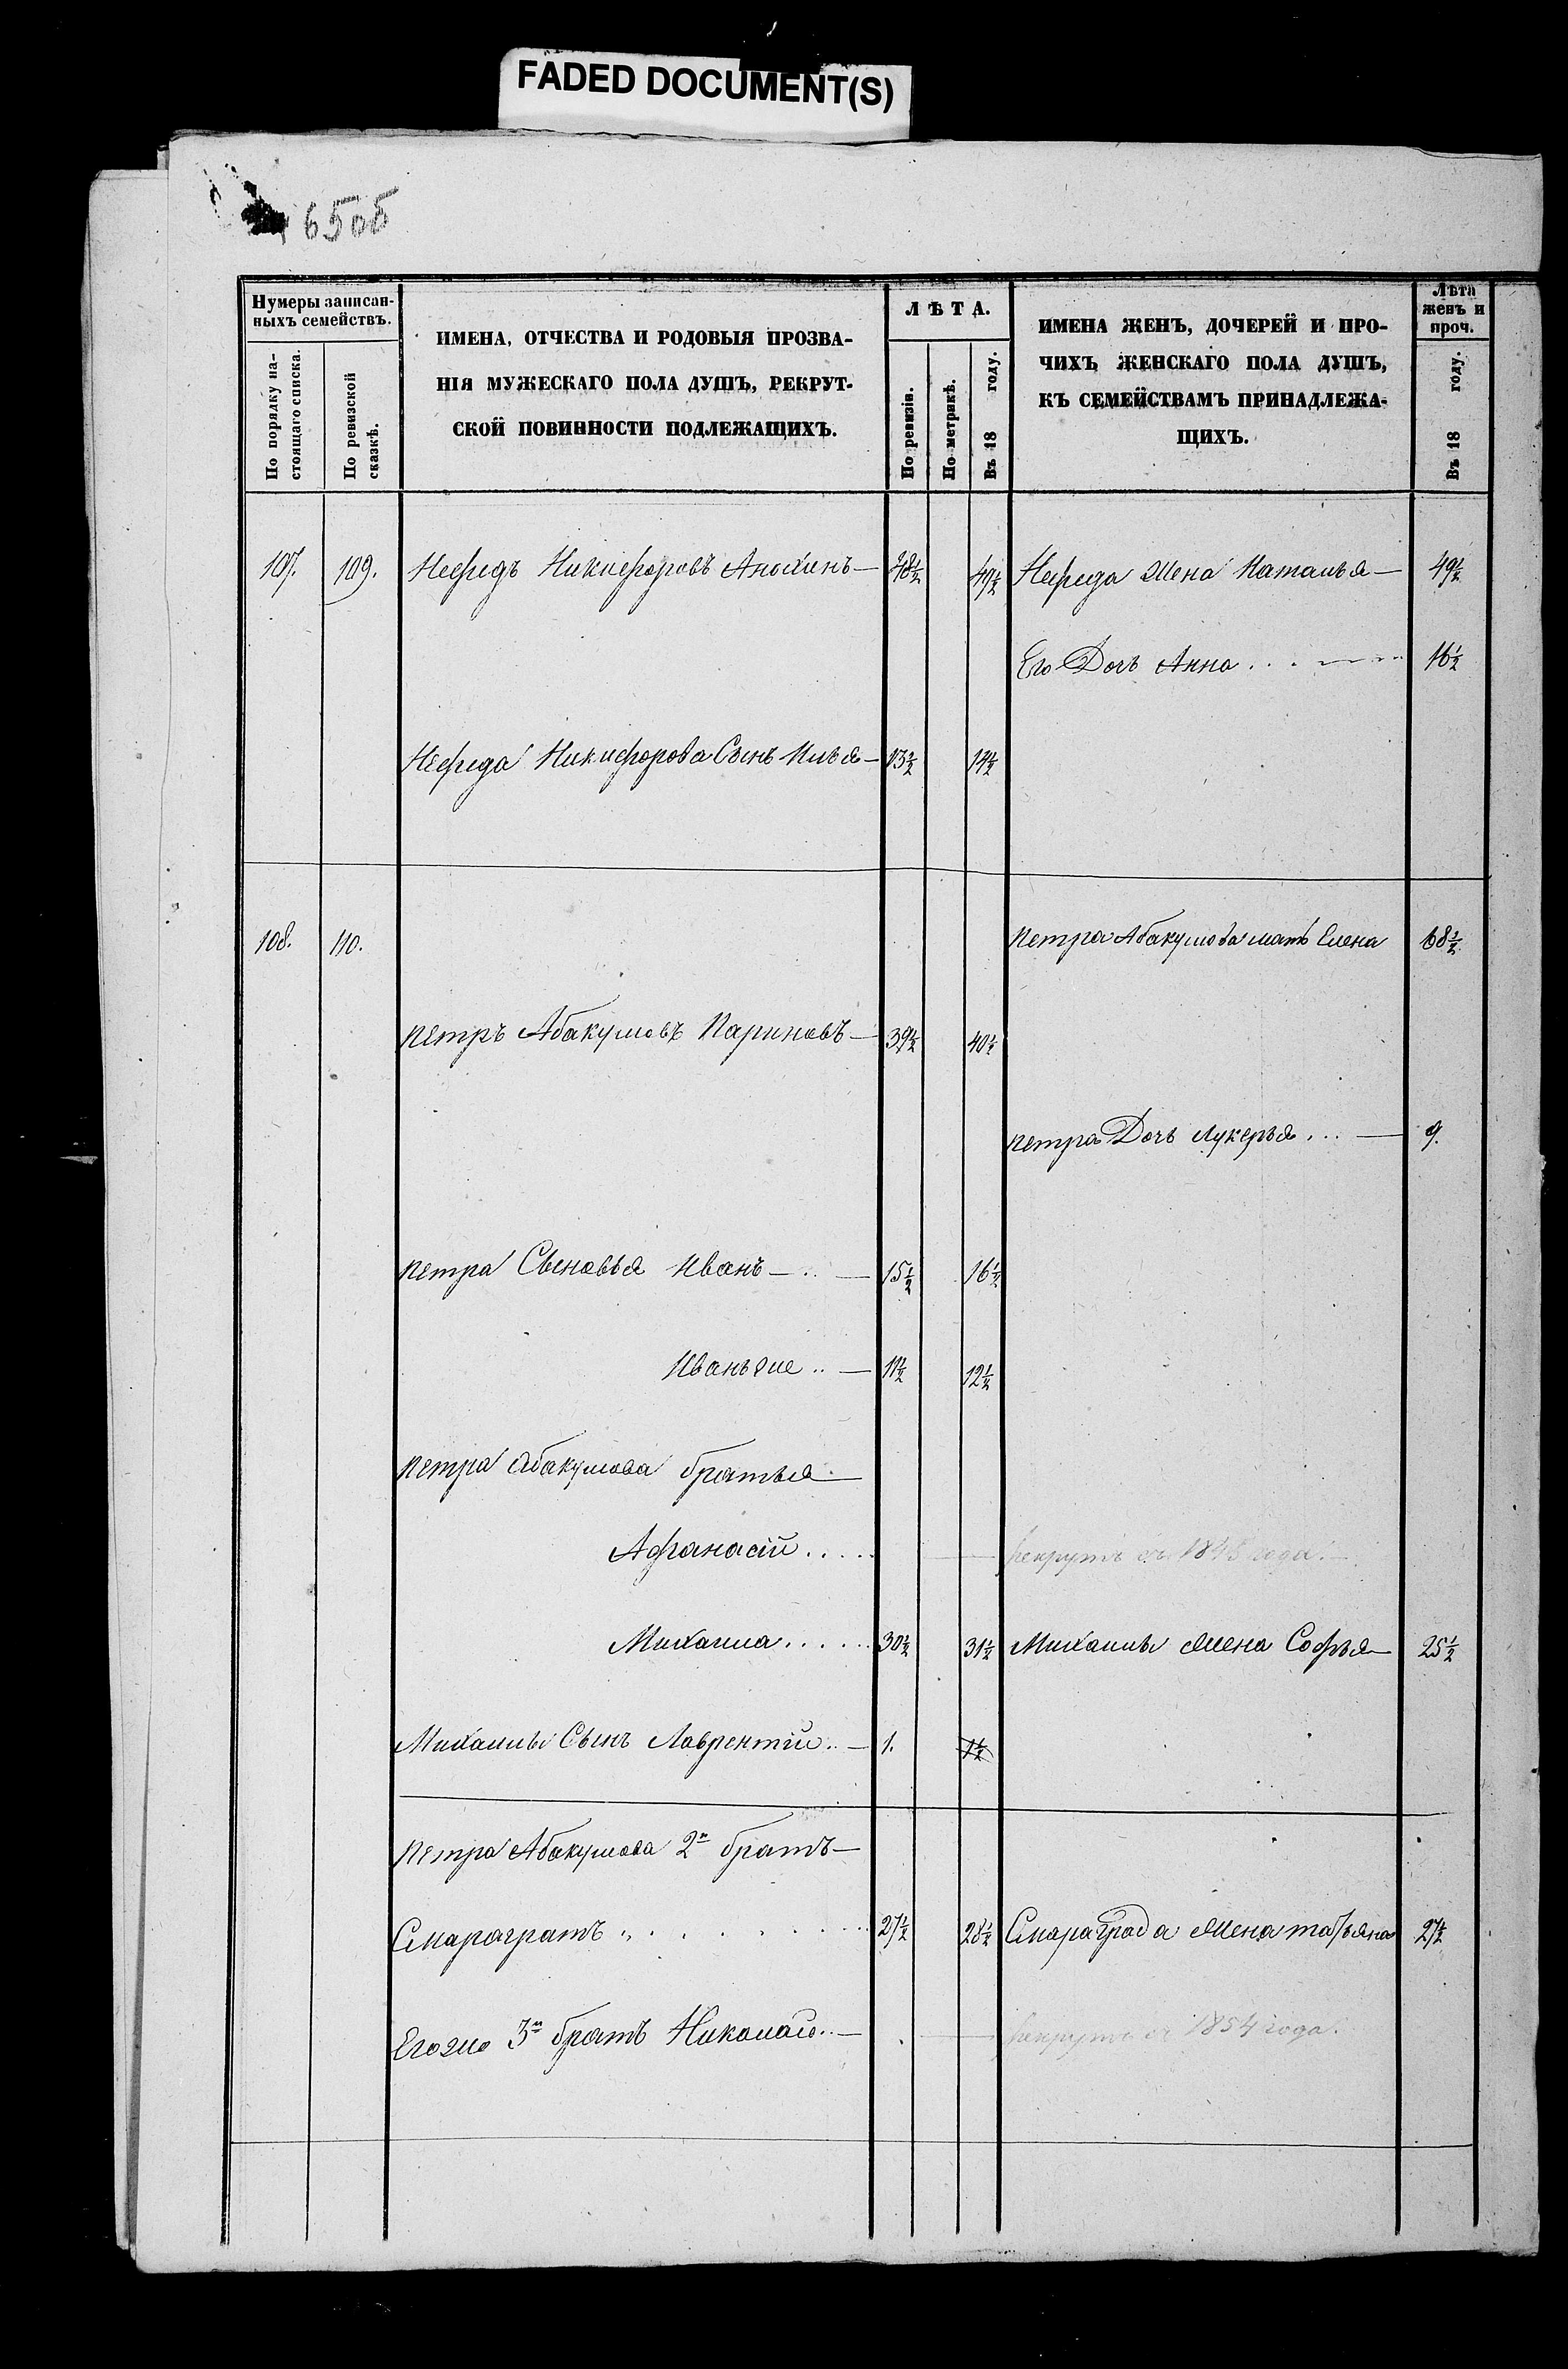 FADED DOCUMENT(S)
6505
Нумеры записан-
ныхъ семействъ.
По порядку на-
стоящаго списка.
По ревизской
сказкѣ.
ИМЕНА, ОТЧЕСТВА И РОДОВЫЯ ПРОЗВА-
НІЯ МУЖЕСКАГО ПОЛА ДУШЪ, РЕКРУТ-
СКОЙ ПОВИННОСТИ ПОДЛЕЖАЩИХЪ.
ЛѢТА.
По ревизіи.
По метрикѣ.
Въ 18 году.
ИМЕНА ЖЕНЪ, ДОЧЕРЕЙ И ПРО-
ЧИХЪ ЖЕНСКАГО ПОЛА ДУШЪ,
КЪ СЕМЕЙСТВАМЪ ПРИНАДЛЕЖА-
ЩИХЪ.
Лѣта
женъ и
проч.
Въ 18 году.
107. 109. Нефедъ Никифоровъ Анохинъ — 48½ 49½ Нефеда Жена Наталья — 49½
Его Дочь Анна . . . 16½
Нефеда Никифорова Сынъ Илья — 13½ 14½
108. 110. Петра Абакумова мать Елена 68½
Петръ Абакумовъ Париновъ — 39½ 40½
Петра Дочь Лукерья . . . — 9.
Петра Сыновья Иванъ — .. — 15½ 16½
Иванъ же .. — 11½ 12½
Петра Абакумова братья —
Афанасій . . . . . — рекрутъ съ 1845 года. —
Михаила . . . . . . 30½ 31½ Михаилы Жена Софья — 25½
Михаилы Сынъ Лаврентій .. — 1. 1½
Петра Абакумова 2й братъ —
Смарагратъ . . . . . . . . 27½ 28½ Смараграда Жена татьяна 27½
Егоже 3й братъ Николай .. — . — рекрутъ съ 1854 года.